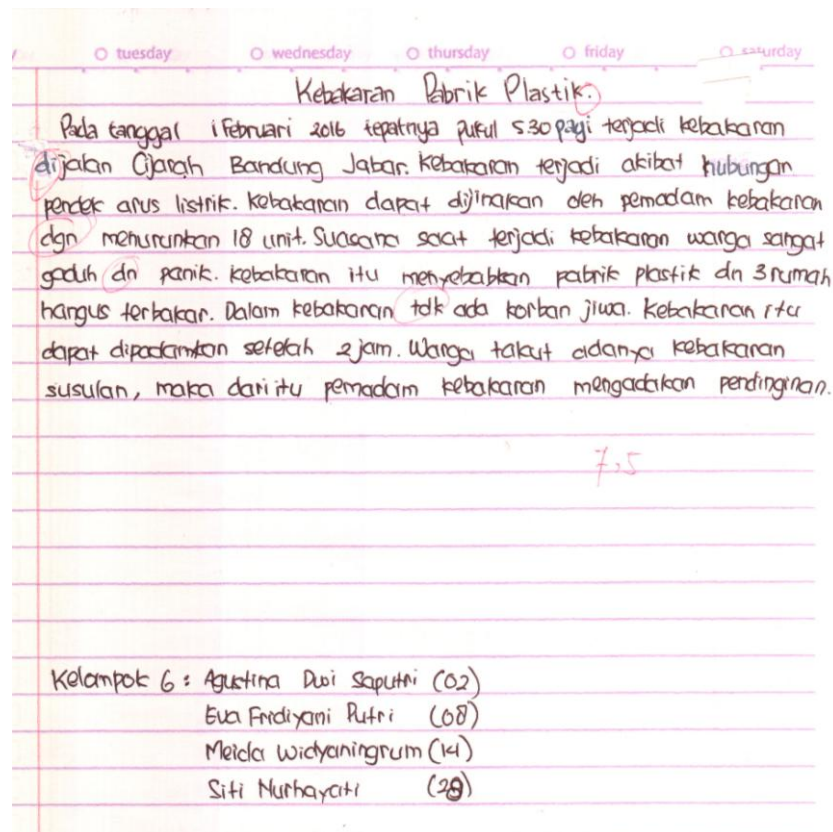 tuesday wednesday thursday friday saturday
Kebakaran Pabrik Plastik.
Pada tanggal 1 Februari 2016 tepatnya pukul 5.30 pagi terjadi kebakaran
dijalan Cijarah Bandung Jabar. Kebakaran terjadi akibat hubungan
pendek arus listrik. Kebakaran dapat dijinakan oleh pemadam kebakaran
dgn menurunkan 18 unit. Suasana saat terjadi kebakaran warga sangat
gaduh dn panik. Kebakaran itu menyebabkan pabrik plastik dn 3 rumah
hangus terbakar. Dalam kebakaran tdk ada korban jiwa. Kebakaran itu
dapat dipadamkan setelah 2 jam. Warga takut adanya kebakaran
susulan, maka dari itu pemadam kebakaran mengadakan pendinginan.
7,5
Kelompok 6 : Agustina Dwi Saputri (02)
Eva Fridiyani Putri (08)
Meida Widyaningrum (14)
Siti Nurhayati (28)